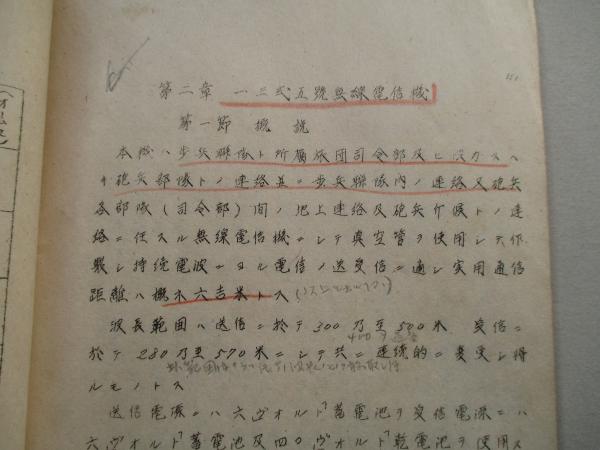 第二章 一三式五號無線電信機
第一節 概説
本機ハ歩兵聯隊ト所属旅団司令部及ヒ
砲兵部隊トノ連絡並ニ歩兵聯隊内ノ連絡又砲兵
各部隊(司令部)間ノ地上連絡及砲兵斥候トノ連
絡ニ任スル無線電信機ニシテ真空管ヲ使用シテ作
製シ持続電波ニヨル電信ノ送受信ニ適シ実用通信
距離ハ概ネ六吉米トス
波長範囲ハ送信ニ於テ300乃至500米 受信ニ
於テ280乃至570米ニシテ共ニ連続的ニ変更シ得
ルモノトス
送信電源ニハ六ヴォルト蓄電池ヲ受信電源ニハ
六ヴォルト蓄電池及四〇ヴォルト乾電池ヲ使用ス